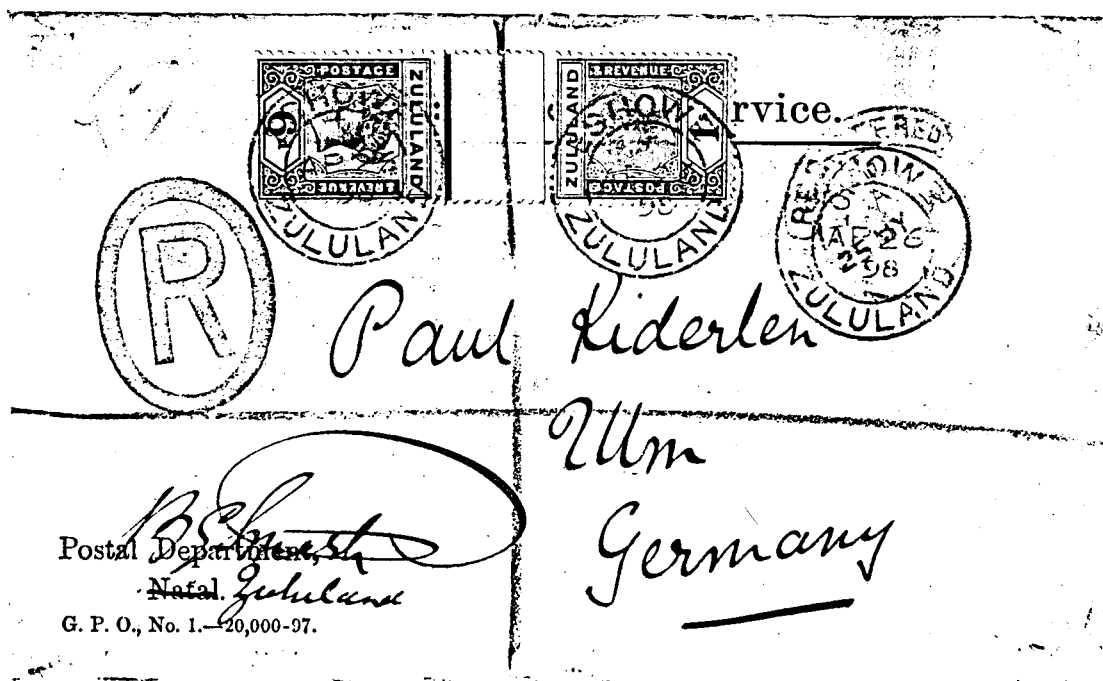 POSTAGE
ZULULAND
& REVENUE
& REVENUE
ZULULAND
POSTAGE
1
rvice.
ESHOWE
98
ZULULAND
ESHOWE
98
ZULULAND
ESHOWE
AP 26
98
ZULULAND
R
Paul Kiderlen
Ulm
Germany
Postal Department,
Natal. Zululand
G. P. O., No. 1.—20,000-97.